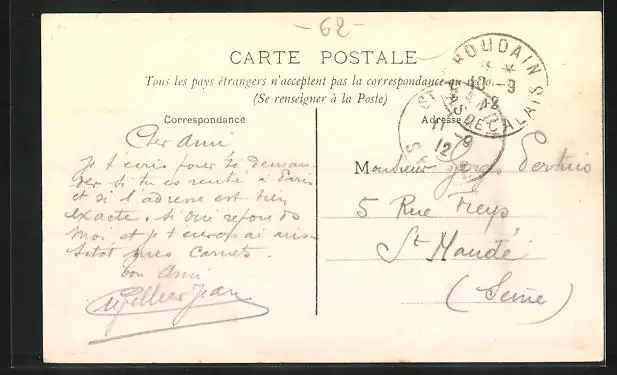 -62-
CARTE POSTALE
Tous les pays étrangers n'acceptent pas la correspondance au recto.
(Se renseigner à la Poste)
HOUDAIN
10 -9
12
PAS DE CALAIS
11 -9
12
Correspondance
Adresse
Cher ami,
je t'écris pour te deman-
der si tu es rentré à Paris
et si l'adresse est bien
exacte. Si oui réponds
moi et je t'enverrai aus-
sitôt mes carnets.
ton ami
Jean
Monsieur Pertuis
5 Rue
St Mandé
(Seine)